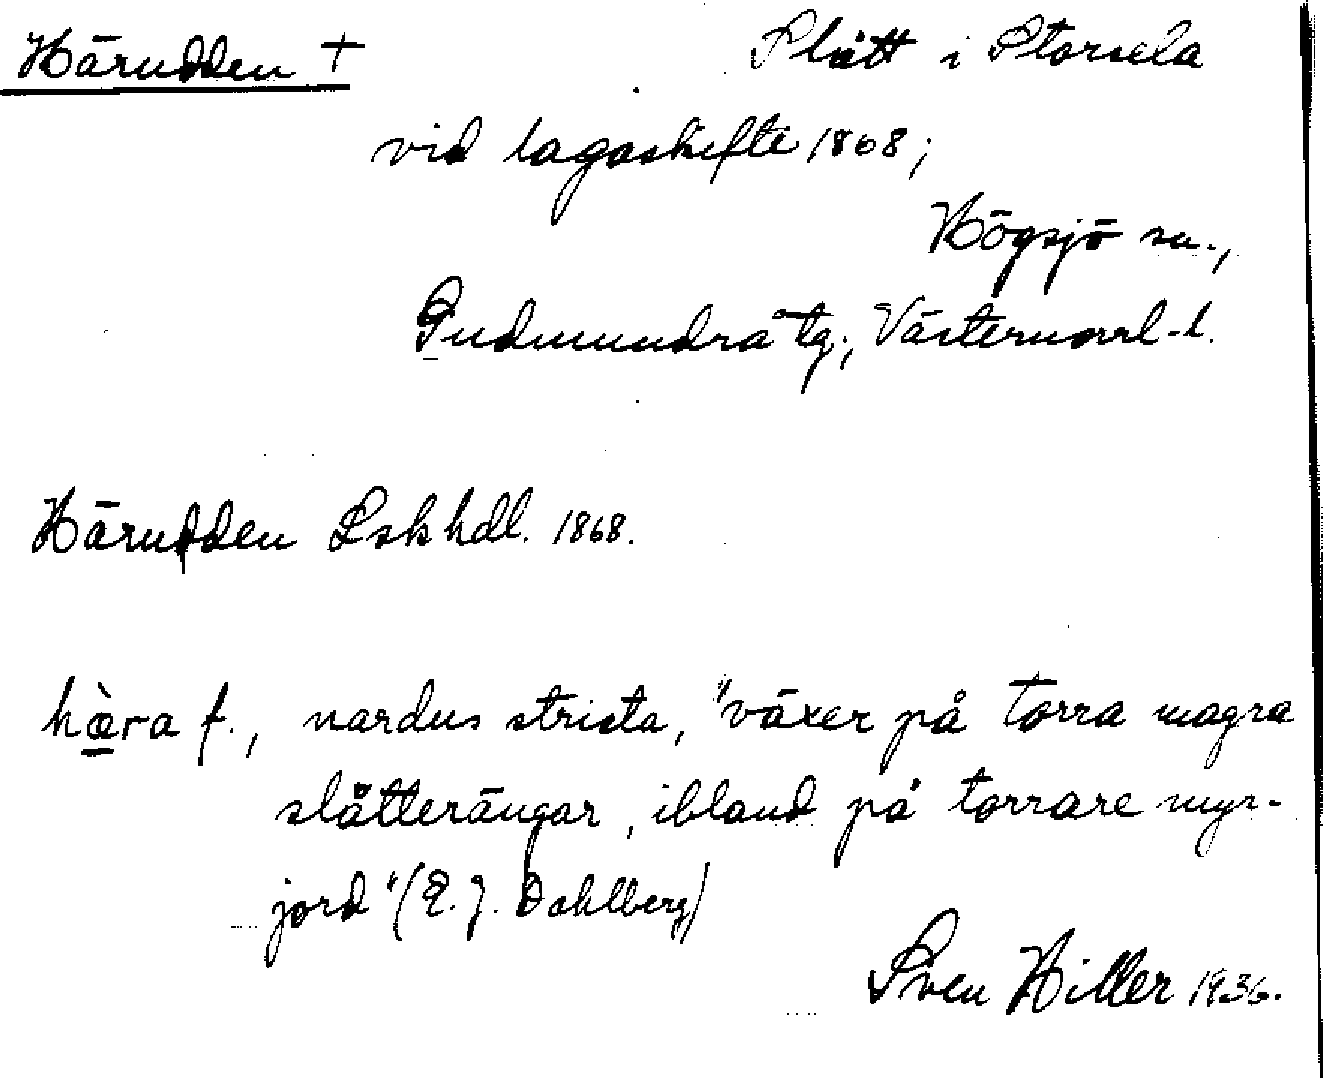 Härudden + Slått i Storsela
vid lagaskifte 1868;
Högsjö sn.,
Gudmundrå tg., Västernorrl-l.
Härudden Lskhdl. 1868.
hæ̀ra f., nardus stricta, "växer på torra magra
slåtterängar, ibland på torrare myr-
jord" (E. J. Dahlberg)
Sven Hiller 1936.